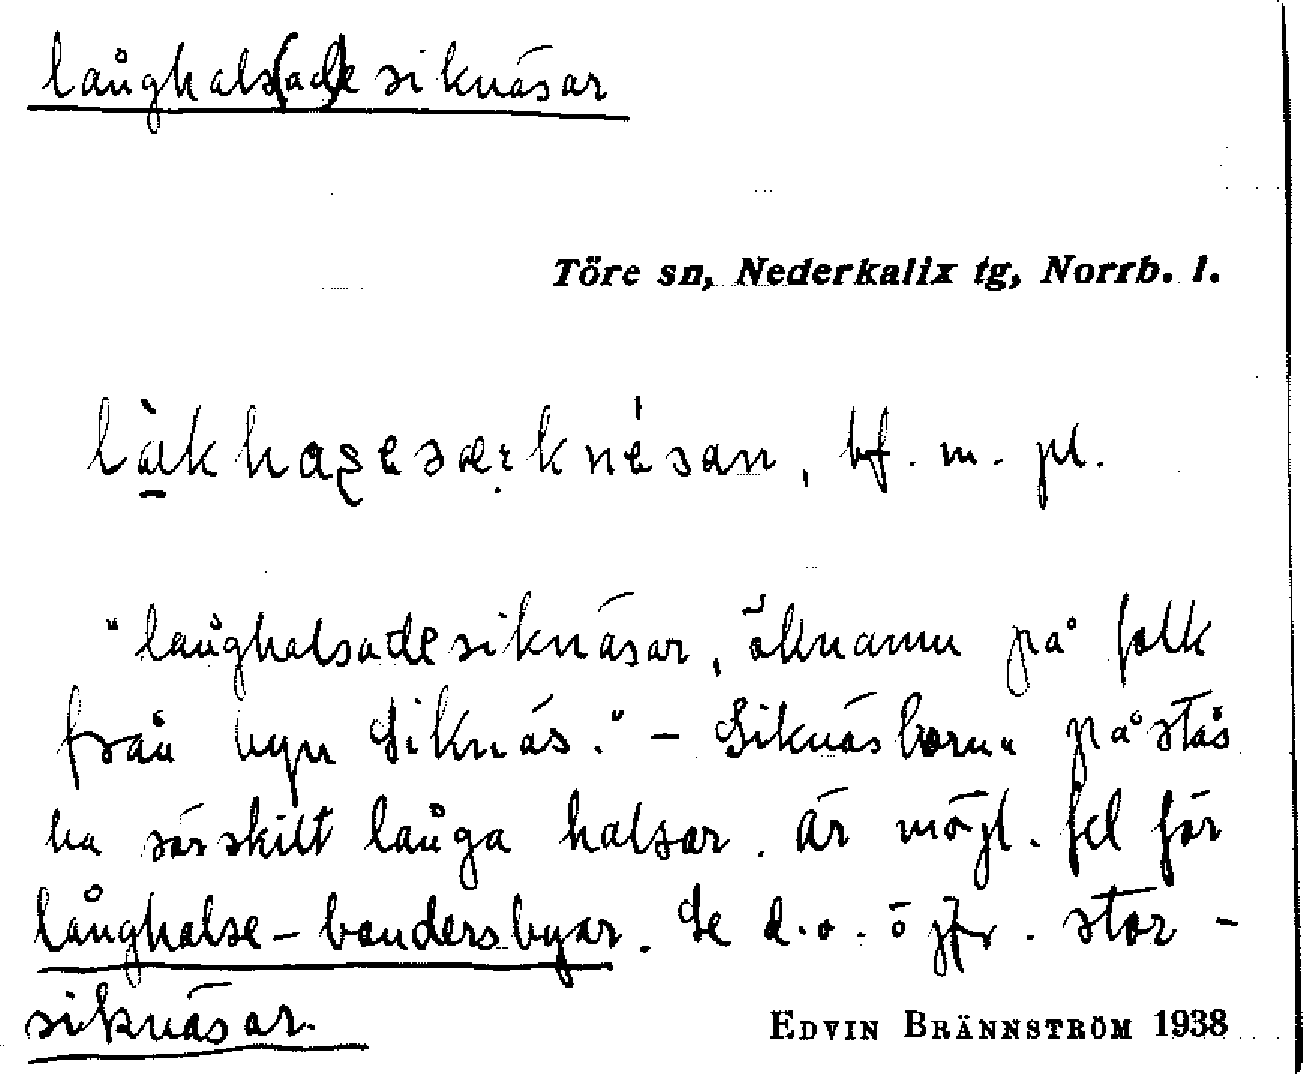 långhals(ad)e siknäsar
Töre sn, Nederkalix tg, Norrb. l.
bf. m. pl.
"långhalsade siknäsar, öknamn på folk
från byn Siknäs." – Siknäsborna påstås
ha särskilt långa halsar. Är möjl. fel för
långhalse-bondersbyar. Se d.o. o jfr. stor-
siknäsar.
EDVIN BRÄNNSTRÖM 1938